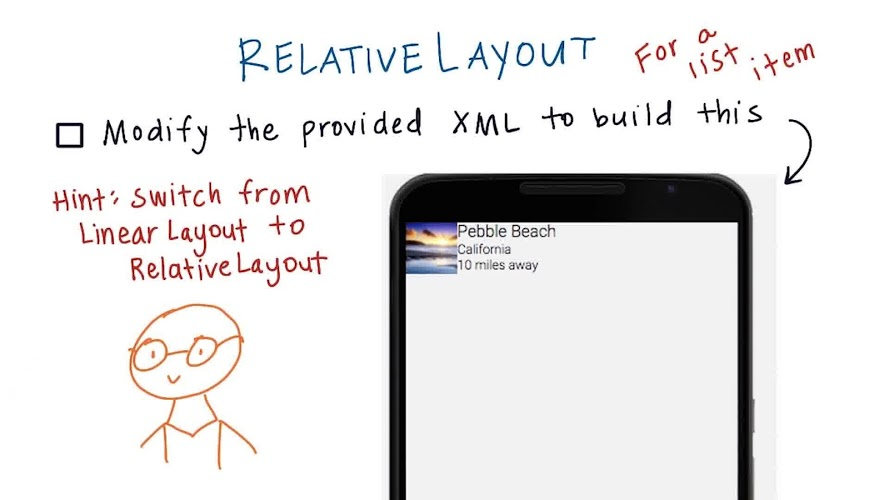 RELATIVELAYOUT
For a list item
Modify the provided XML to build this
Hint: Switch from
Linear Layout to
RelativeLayout
Pebble Beach
California
10 miles away